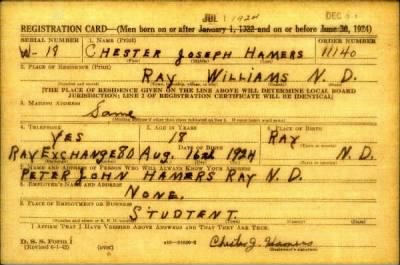 JUL 1 1924 DEC
REGISTRATION CARD—(Men born on or after January 1, 1922 and on or before June 30, 1924)
SERIAL NUMBER 1. NAME (Print) ORDER NUMBER
W-19 CHESTER JOSEPH HAMERS 11140
2. PLACE OF RESIDENCE (Print)
RAY WILLIAMS N. D.
[THE PLACE OF RESIDENCE GIVEN ON THE LINE ABOVE WILL DETERMINE LOCAL BOARD
JURISDICTION; LINE 2 OF REGISTRATION CERTIFICATE WILL BE IDENTICAL]
3. MAILING ADDRESS
Same
4. TELEPHONE 5. AGE IN YEARS 6. PLACE OF BIRTH
YES 18 RAY
DATE OF BIRTH
RAY EXCHANGE 80 Aug. 16 1924 N. D.
7. NAME AND ADDRESS OF PERSON WHO WILL ALWAYS KNOW YOUR ADDRESS
PETER JOHN HAMERS RAY N. D.
8. EMPLOYER'S NAME AND ADDRESS
NONE.
9. PLACE OF EMPLOYMENT OR BUSINESS
STUDTENT.
I AFFIRM THAT I HAVE VERIFIED ABOVE ANSWERS AND THAT THEY ARE TRUE.
D. S. S. Form 1
(Revised 6-1-42) Chester J. Hamers